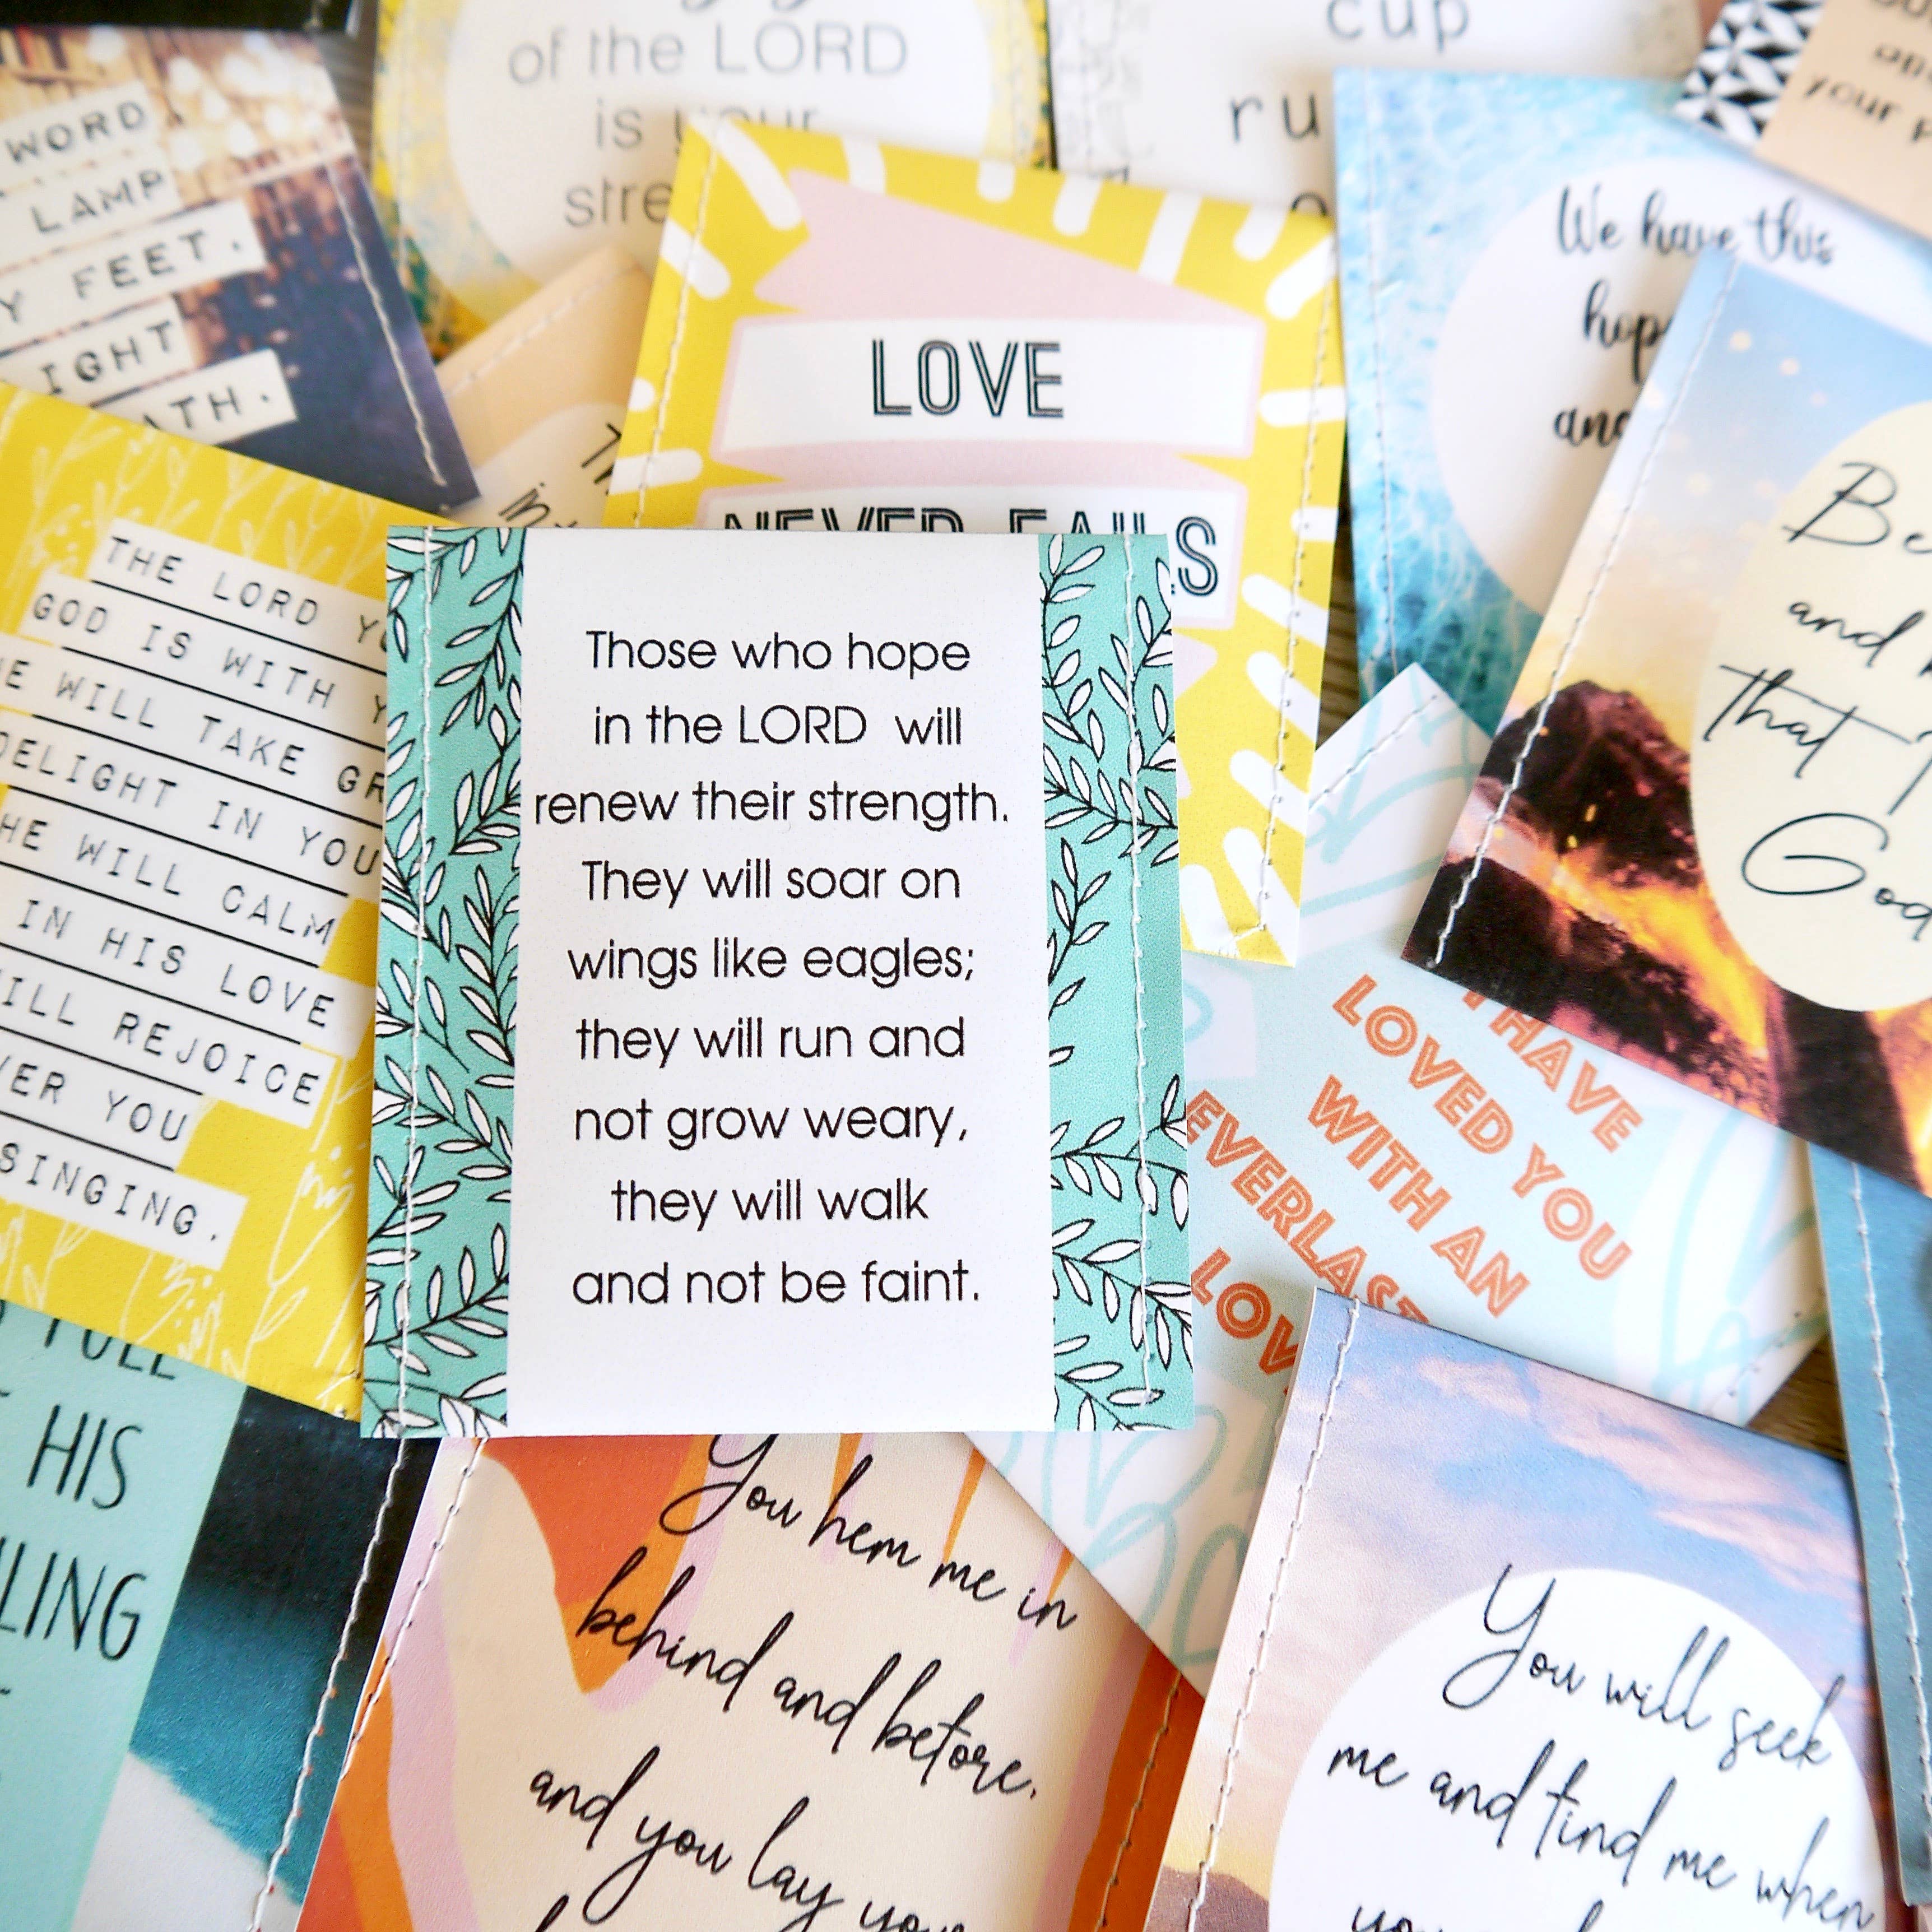 of the LORD
is your
cup
WORD
LAMP
FEET.
LOVE
NEVER FAILS
We have this
and
that
God
THE LORD
GOD IS WITH
WILL TAKE
DELIGHT IN YOU
HE WILL CALM
IN HIS LOVE
REJOICE
YOU
SINGING.
Those who hope
in the LORD will
renew their strength.
They will soar on
wings like eagles;
they will run and
not grow weary,
they will walk
and not be faint.
I HAVE
LOVED YOU
WITH AN
HIS
You hem me in
behind and before,
and you lay your
You will seek
me and find me when